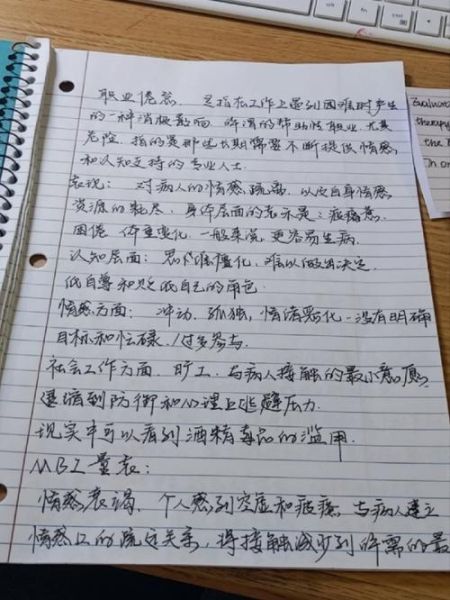 职业倦怠，是指在工作上遇到困难时产生
的一种消极影响，所谓的帮助性职业尤其
危险，指的是那些长期需要不断提供情感
和认知支持的专业人士.
表现：对病人的情感疏离，以及自身情感
资源的耗尽，身体层面的表示是：疲惫感
困倦，体重变化，一般来说，更容易生病.
认知层面：思维僵化，难以做出决定.
低自尊和贬低自己的角色.
情感方面：冲动，孤独，情绪恶化，没有明确
目标和忙碌/过多参与.
社会工作方面，旷工，与病人接触的最小意愿
退缩到防御和心理上逃避压力.
现实中可以看到酒精毒品的滥用.
MBI量表：
情感衰竭，个人感到空虚和疲惫，与病人建立
情感上的疏远关系，将接触减少到所需的最
Evaluat
therapy
the
in or